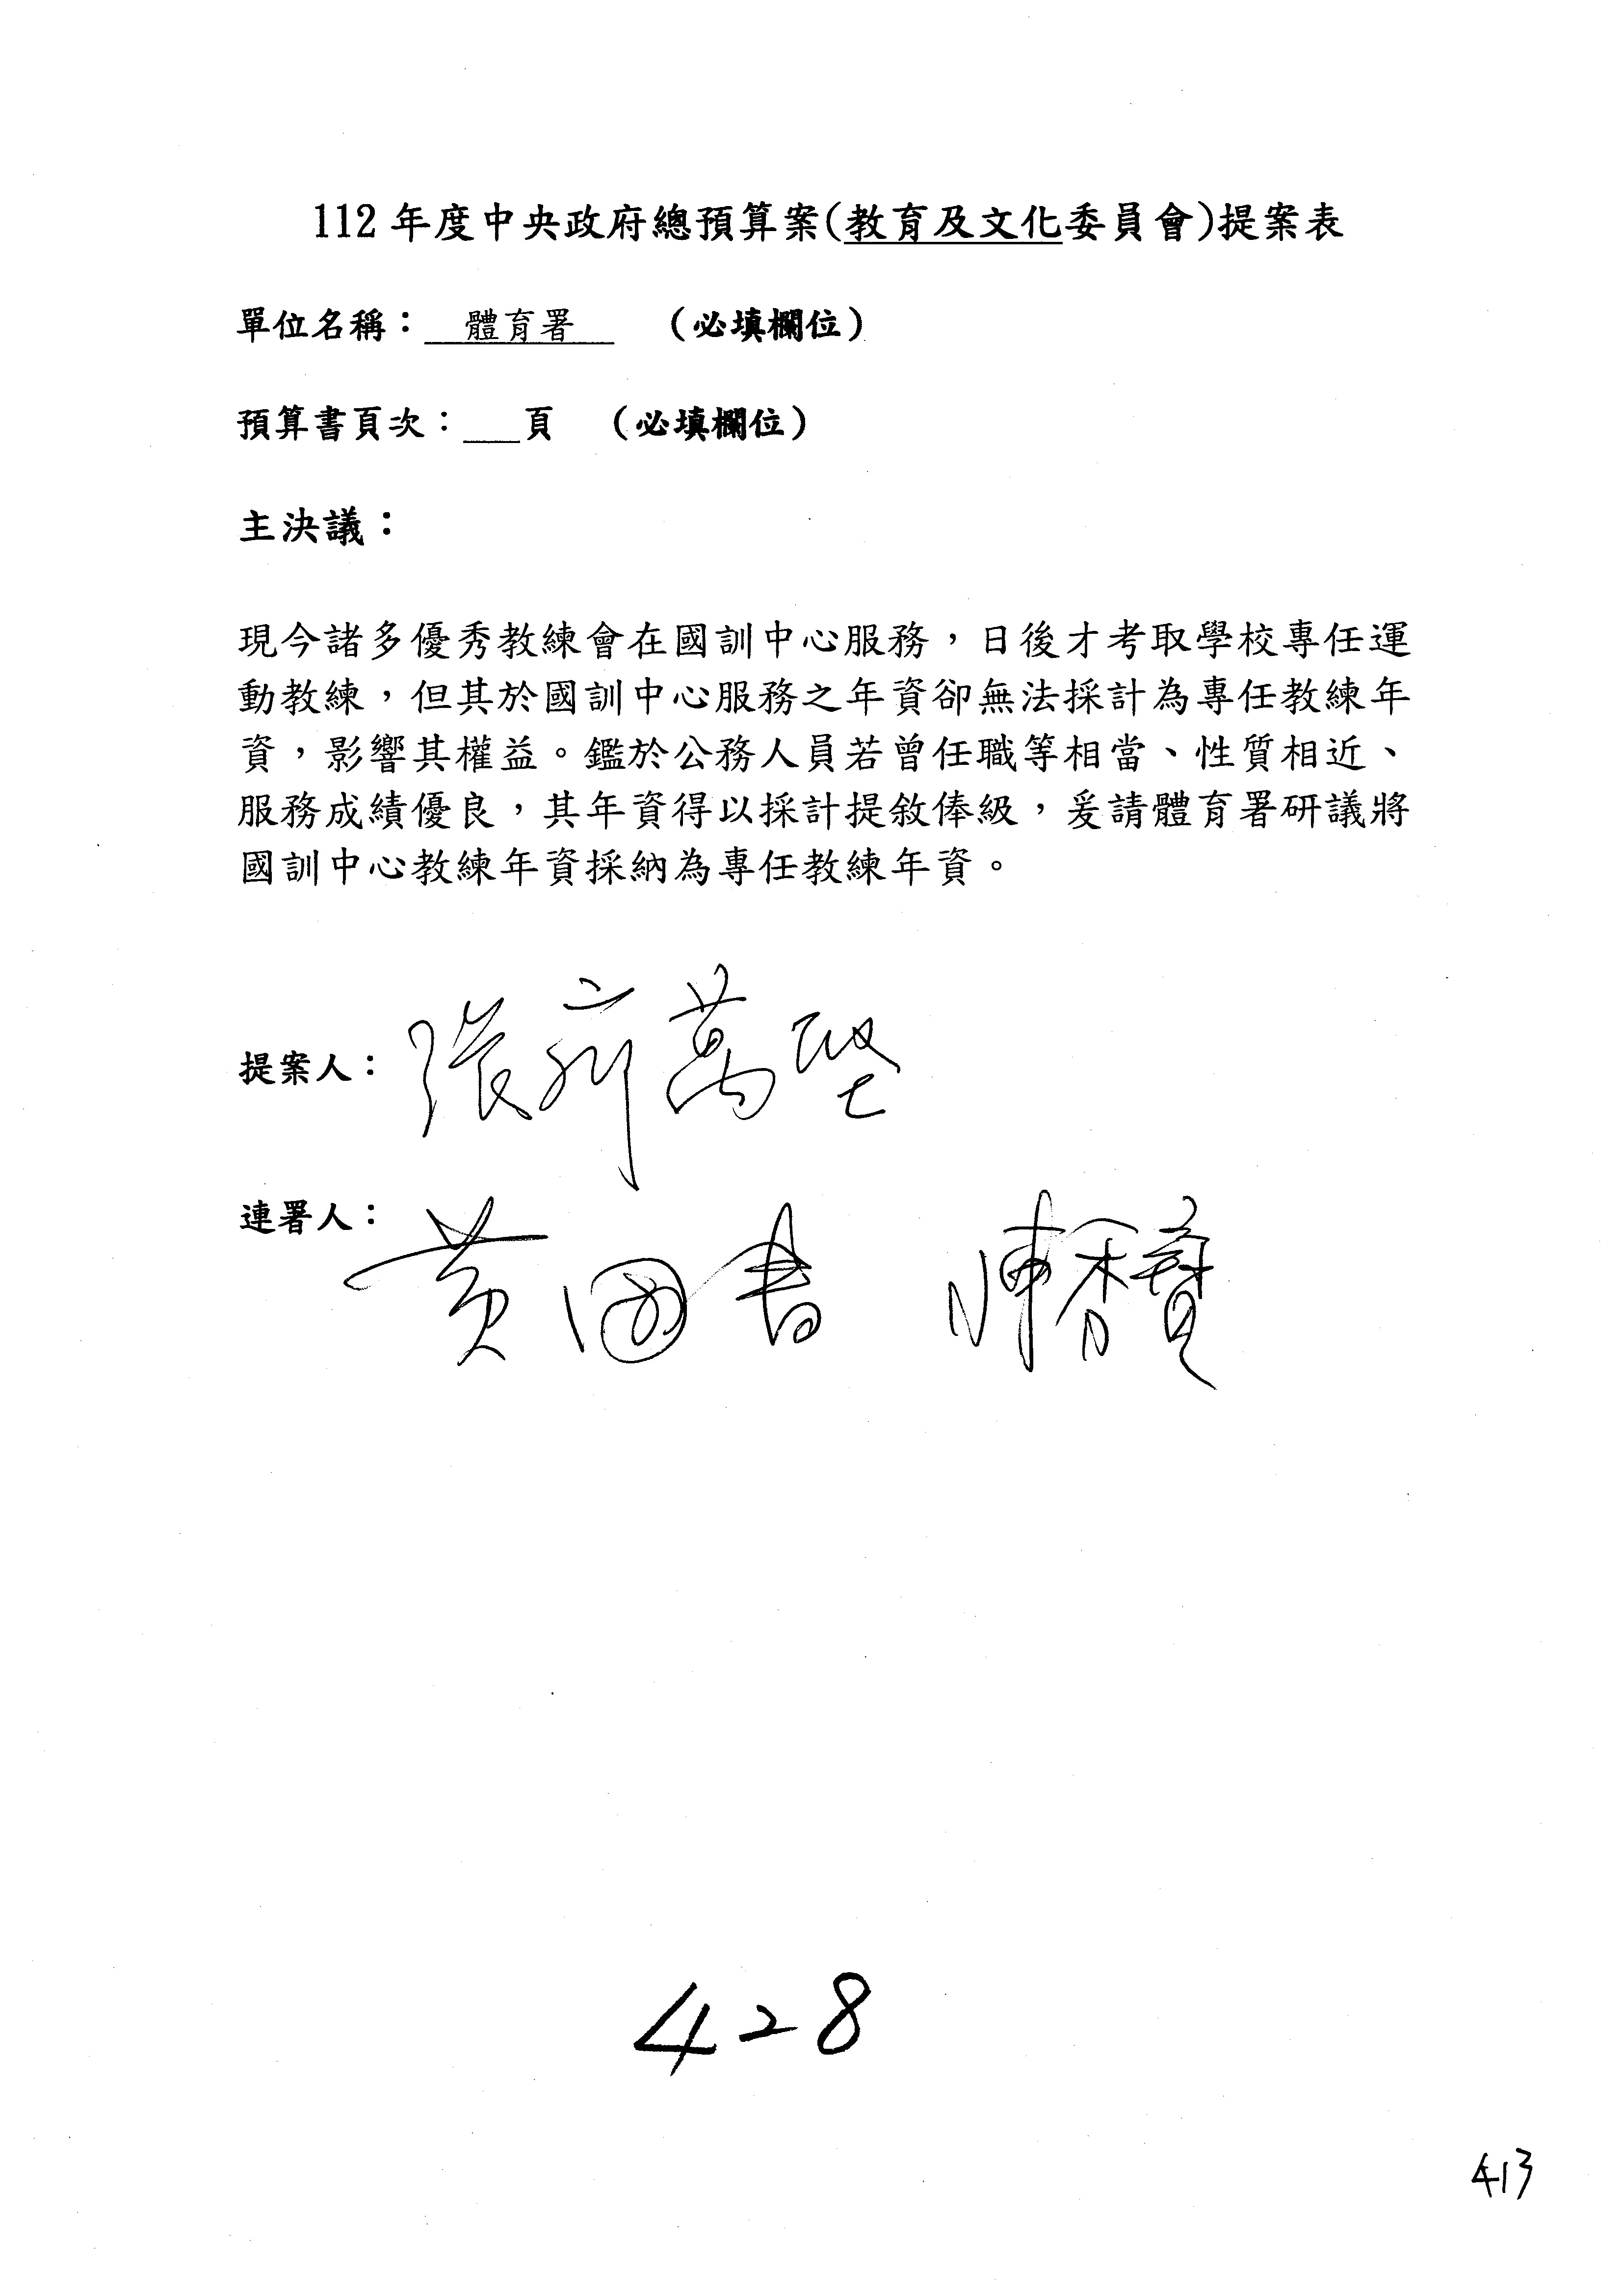 112年度中央政府總預算案(教育及文化委員會)提案表
單位名稱：　體育署　（必填欄位）
預算書頁次：＿＿頁　（必填欄位）
主決議：
現今諸多優秀教練會在國訓中心服務，日後才考取學校專任運
動教練，但其於國訓中心服務之年資卻無法採計為專任教練年
資，影響其權益。鑑於公務人員若曾任職等相當、性質相近、
服務成績優良，其年資得以採計提敘俸級，爰請體育署研議將
國訓中心教練年資採納為專任教練年資。
提案人：張廖萬堅
連署人：黃國書　陳秀寳
428
413